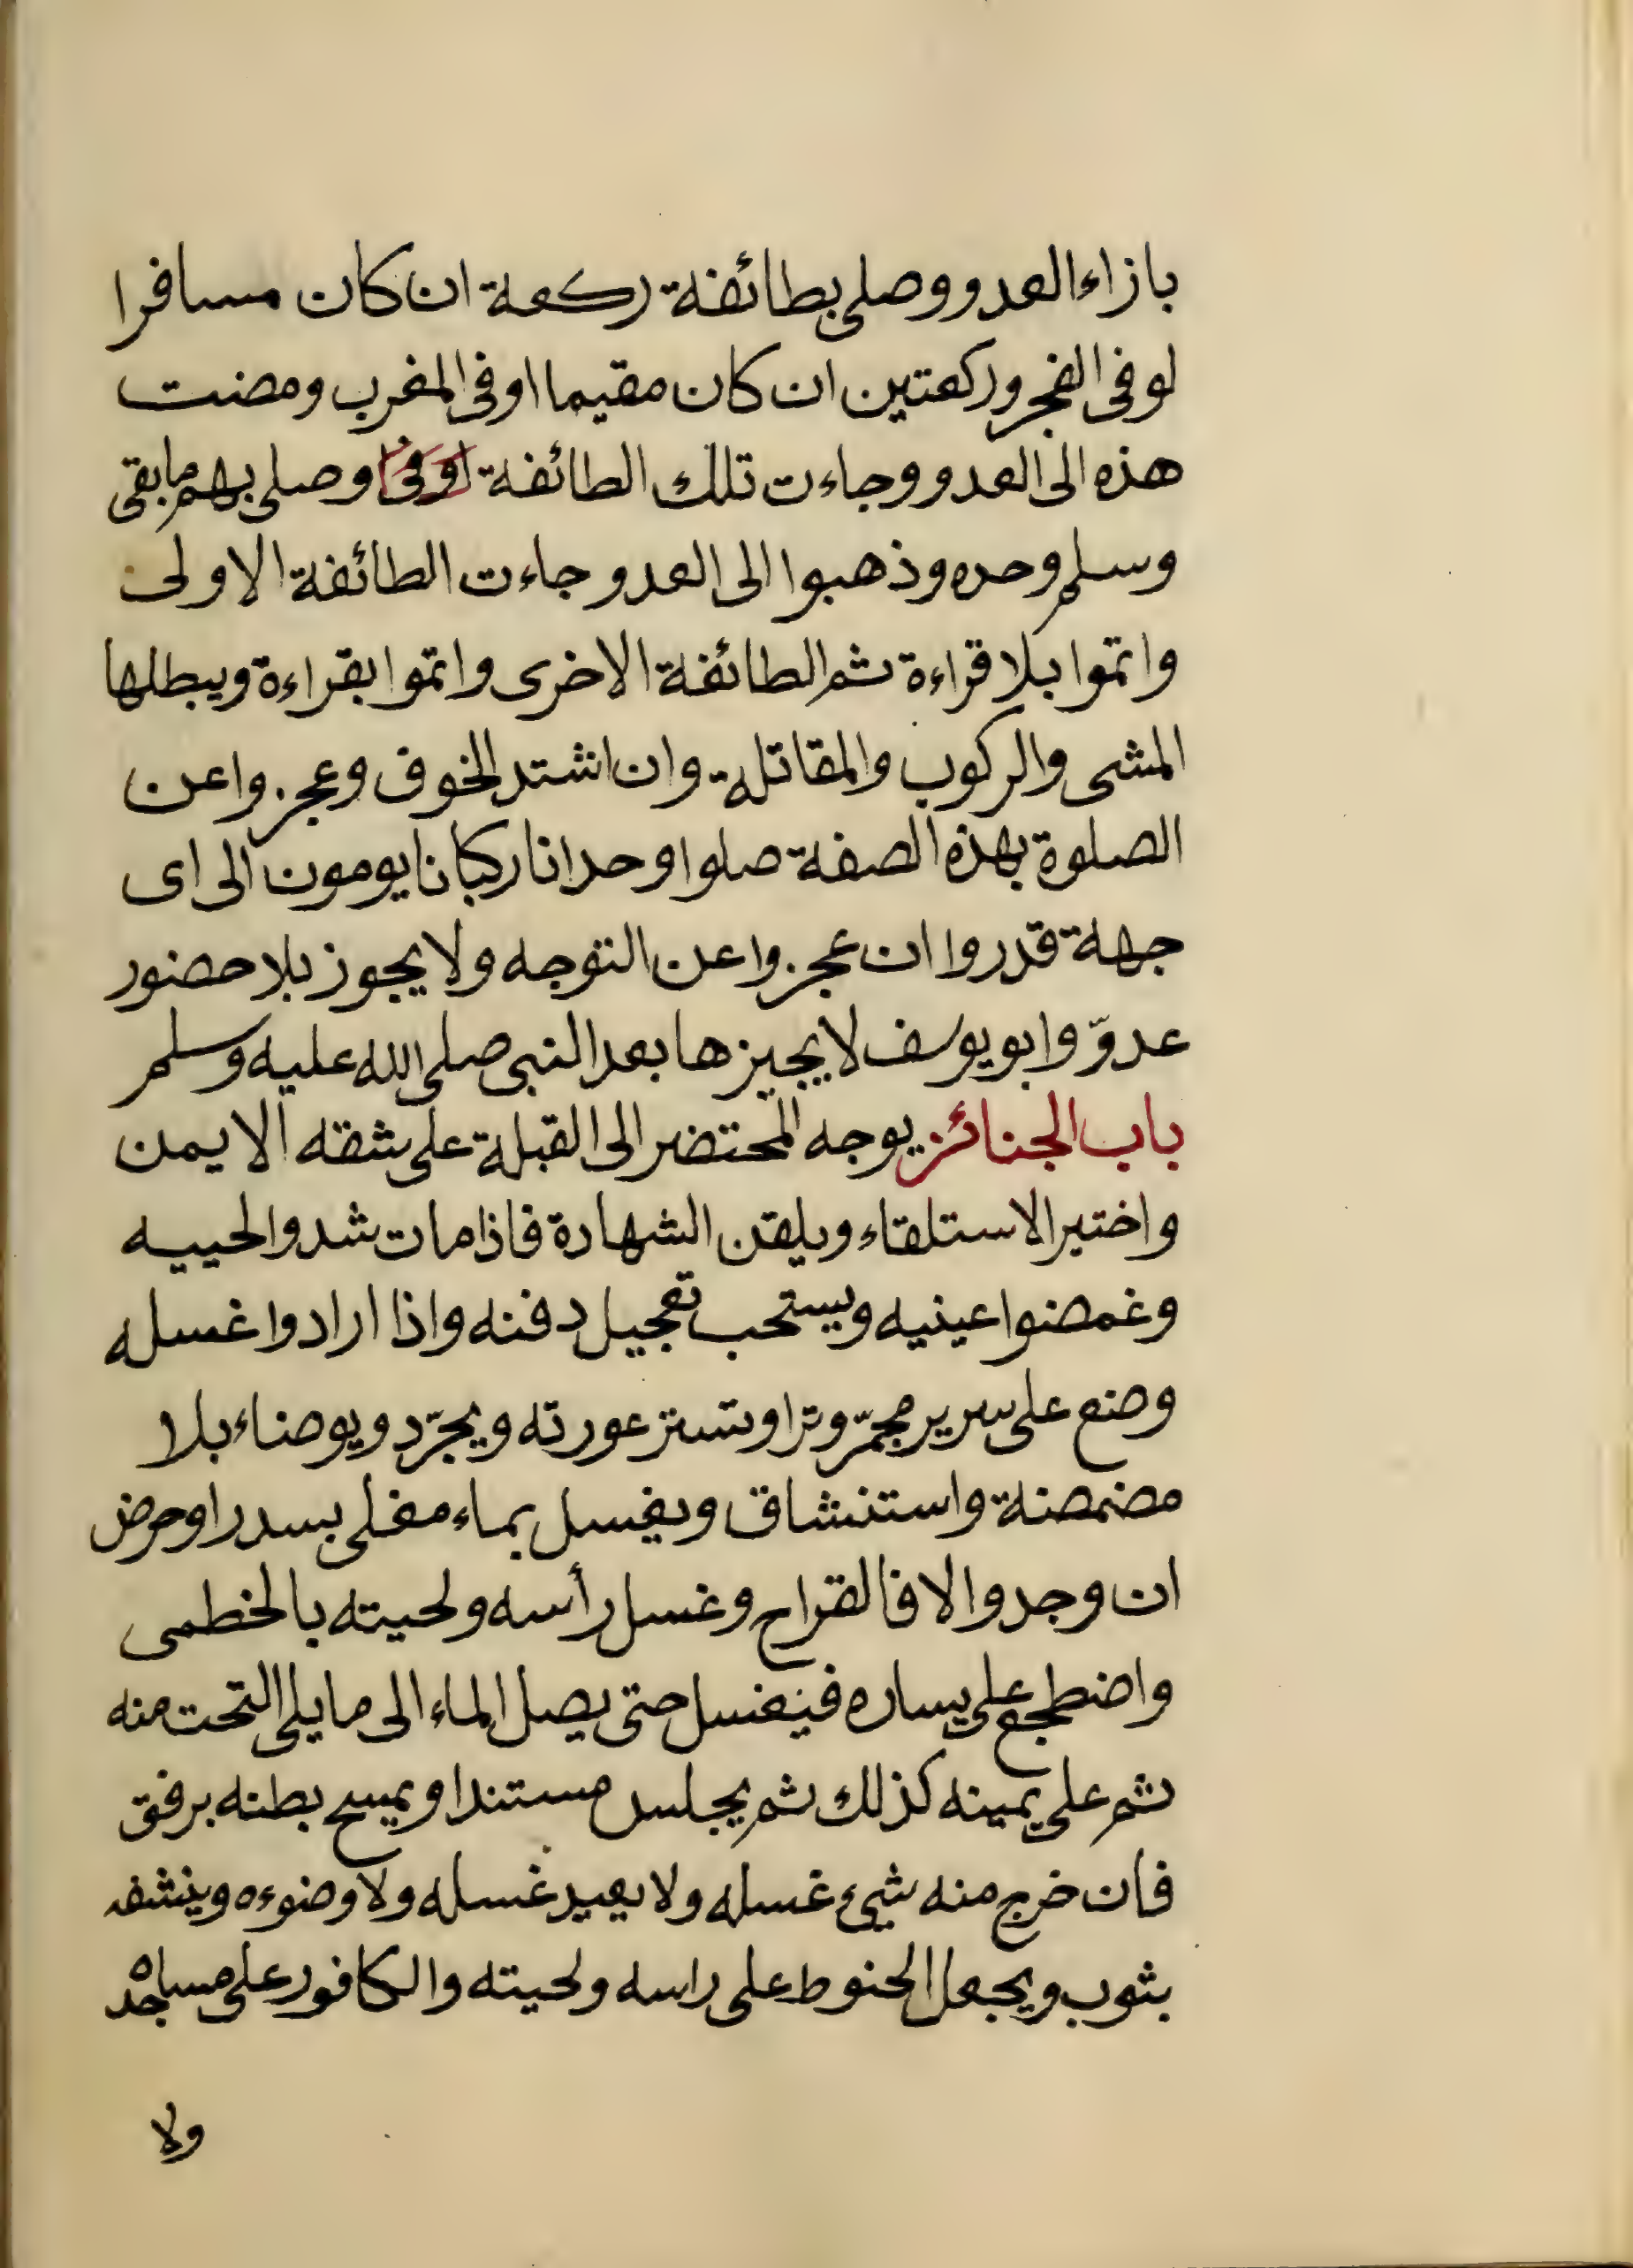 بازاء العدو وصلى بطائفة ركعة ان كان مسافرا
لو فى الفجر وركعتين ان كان مقيما او فى المغرب ومضت
هذه الى العدو وجاءت تلك الطائفة او فى وصلى بهم ما بقى
وسلم وحده وذهبوا الى العدو جاءت الطائفة الاولى
واتموا بلا قراءة ثم الطائفة الاخرى واتموا بقراءة ويبطلها
المشى والركوب والمقاتلة وان اشتد الخوف وعجزوا عن
الصلوة بهذه الصفة صلوا وحدانا ركبانا يومون الى اى
جهة قدروا ان عجزوا عن التوجه ولا يجوز بلا حضور
عدوّ وابو يوسف لا يجيزها بعد النبى صلى الله عليه وسلم
باب الجنائز يوجه المحتضر الى القبلة على شقه الايمن
واختير الاستلقاء ويلقن الشهادة فاذا مات شدوا لحييه
وغمضوا عينيه ويستحب تعجيل دفنه واذا ارادوا غسله
وضع على سرير مجمّر وترا وتستر عورته ويجرّد ويوضاء بلا
مضمضة واستنشاق ويغسل بماء مغلى بسدر او حرض
ان وجد والا فالقراح وغسل رأسه ولحيته بالخطمى
واضطجع على يساره فيغسل حتى يصل الماء الى ما يلى التحت منه
ثم على يمينه كذلك ثم يجلس مستندا ويمسح بطنه برفق
فان خرج منه شيئ غسله ولا يعيد غسله ولا وضوءه وينشفه
بثوب ويجعل الحنوط على راسه ولحيته والكافور على مساجده
ولا